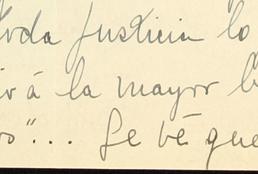 toda Justicia lo
á la mayor
"... Se vé que